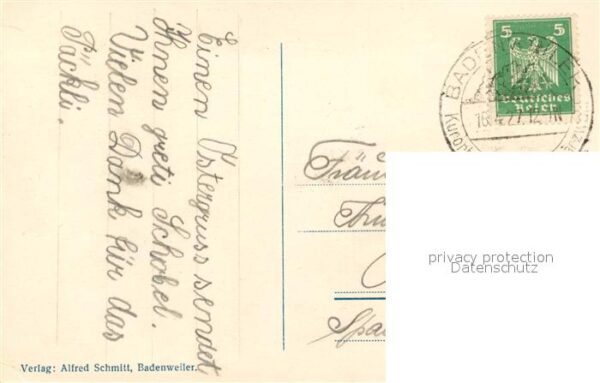 Einen Ostergruss sendet
Ihnen greti Schobel.
Vielen Dank für das
Päckli.
Verlag: Alfred Schmitt, Badenweiler.
5 5
Deutsches
Reich
BADENWEILER
16.4.27.12
Kurort
Fräu
privacy protection
Datenschutz